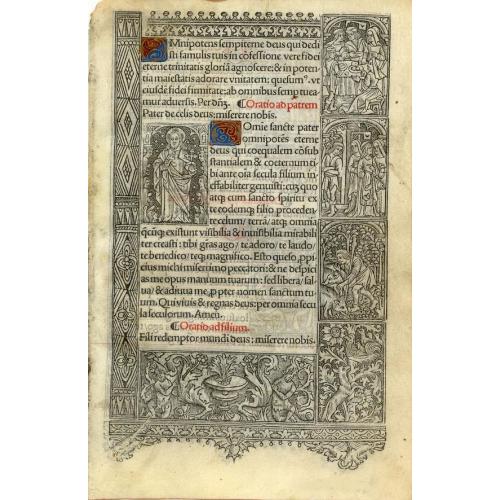 Mnipotens sempiterne deus qui dedi
sti famulis tuis in cōfessione vere fidei
eterne trinitatis gloriā agnoscere: & in poten
tia maiestatis adorare vnitatem: quesumꝰ. vt
eiusdē fidei firmitate: ab omnibus semp tuea
mur aduersis. Per dn̄3. ¶Oratio ad patrem
Pater de celis deus: miserere nobis.
Omie sancte pater
omnipotēs eterne
deus qui coequalem cōsub
stantialem & coeternum ti
bi ante oīa secula filium in
effabiliter genuisti: cū3 quo
atq3 cum sancto spiritu ex
te eodemq3 filio proceden
te celum: terrā: atq3 omnia
q̄cūq3 existunt visibilia & inuisibilia mirabili
ter creasti: tibi gr̄as ago: te adoro: te laudo
te benedico: teq3 magnifico. Esto queso, ppi
cius michi miserrimo peccatori: & ne despici
as me opus manuum tuarum: sed libera: sal
ua: & adiuua me, ppter nomen sanctum tu
um. Qui viuis & regnas deus: per omnia secu
la seculorum. Amen.
¶Oratio ad filium.
Fili redemptor mundi deus: miserere nobis.